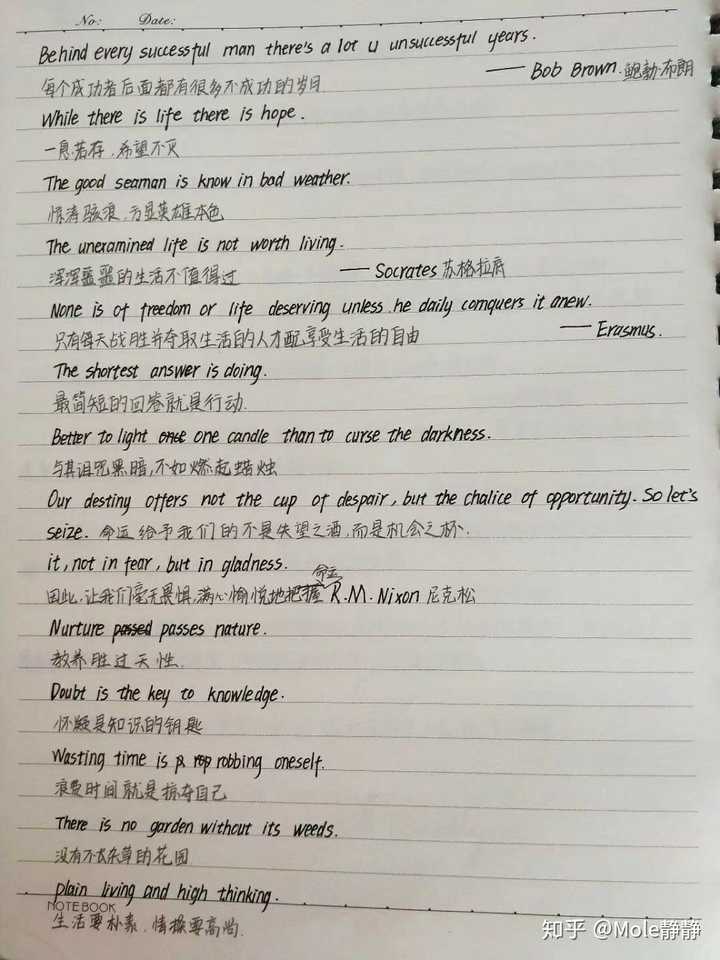 No: Date:
Behind every successful man there's a lot u unsuccessful years.
—— Bob Brown. 鲍勃·布朗
每个成功者后面都有很多不成功的岁月
While there is life there is hope.
一息若存,希望不灭
The good seaman is know in bad weather.
惊涛骇浪,方显英雄本色
The unexamined life is not worth living.
浑浑噩噩的生活不值得过 —— Socrates 苏格拉底
None is of freedom or life deserving unless he daily comquers it anew.
只有每天战胜并夺取生活的人才配享受生活的自由 —— Erasmus.
The shortest answer is doing.
最简短的回答就是行动.
Better to light once one candle than to curse the darkness.
与其诅咒黑暗,不如燃起蜡烛
Our destiny offers not the cup of despair, but the chalice of opportunity. So let's
seize. 命运给予我们的不是失望之酒,而是机会之杯.
it, not in fear, but in gladness.
因此,让我们毫无畏惧,满心愉悦地把握命运 R.M.Nixon 尼克松
Nurture passed passes nature.
教养胜过天性.
Doubt is the key to knowledge.
怀疑是知识的钥匙
Wasting time is robbing oneself.
浪费时间就是掠夺自己
There is no garden without its weeds.
没有不长杂草的花园
plain living and high thinking.
NOTEBOOK
生活要朴素,情操要高尚.
知乎 @Mole静静